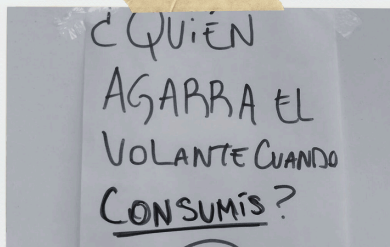 ¿QUiÉN
AGARRA EL
VOLANTE CUANDO
CONSUMÍS?